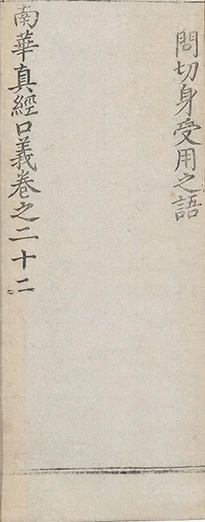 問切身受用之語
南華真經口義卷之二十二